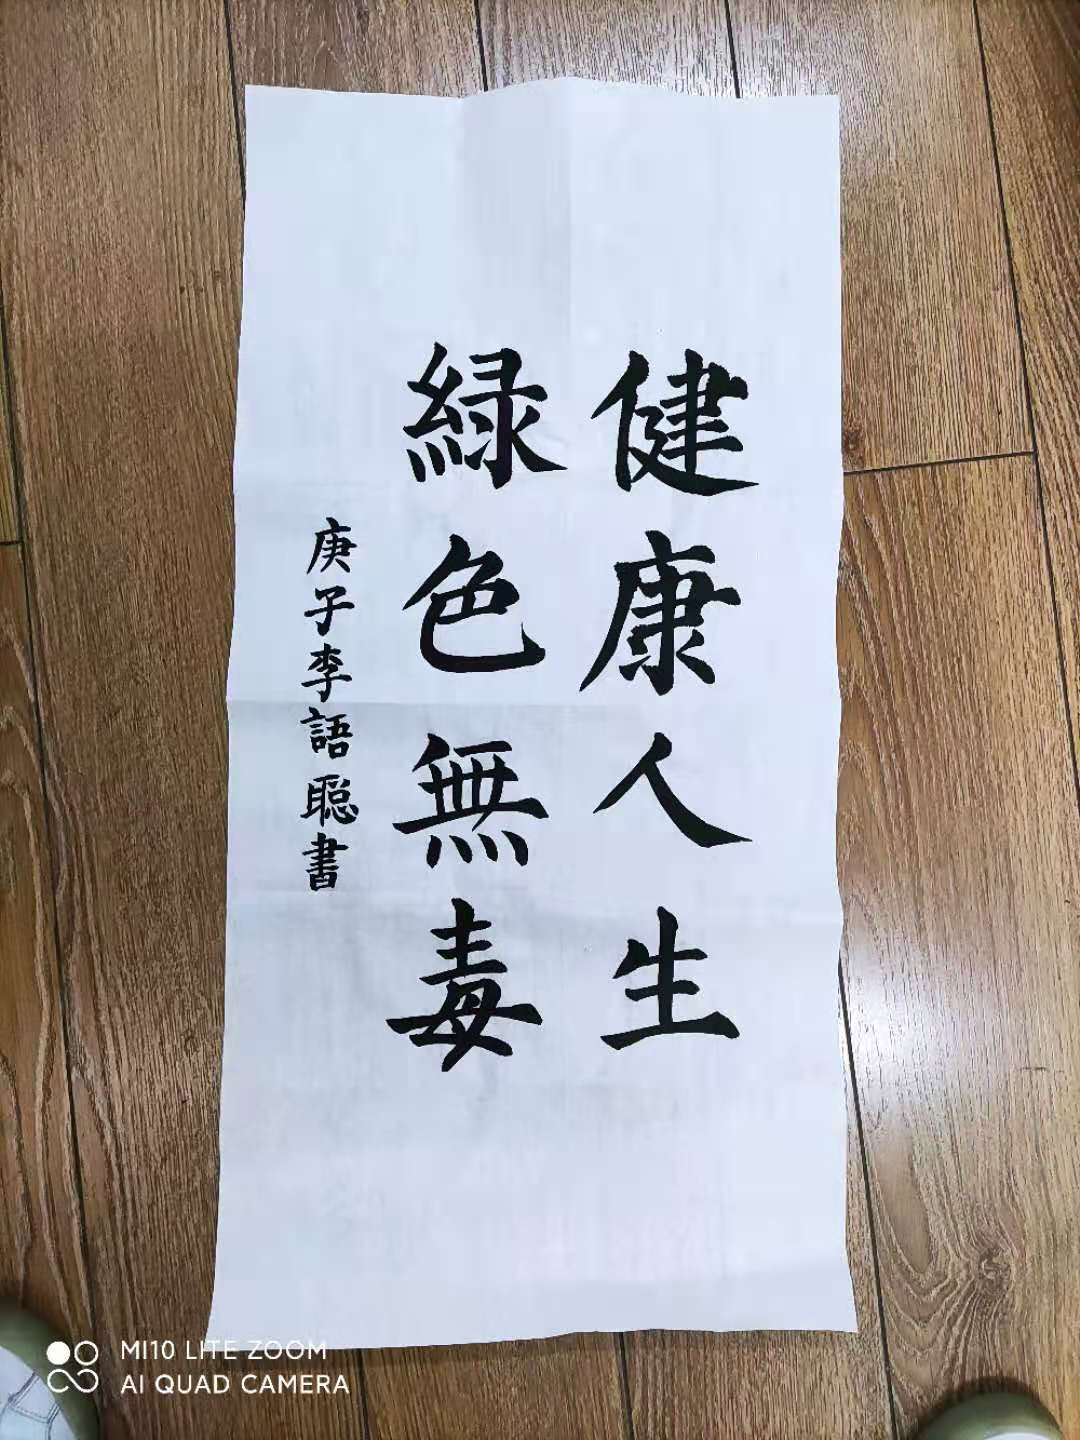 健康人生
緑色無毒
庚子李語聪書
MI10 LITE ZOOM
AI QUAD CAMERA